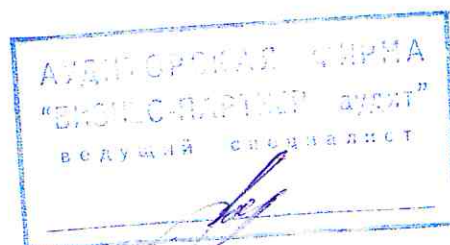 АУДИТОРСКАЯ ФИРМА
"БИЗНЕС-ПАРТНЕР аудит"
ведущий специалист